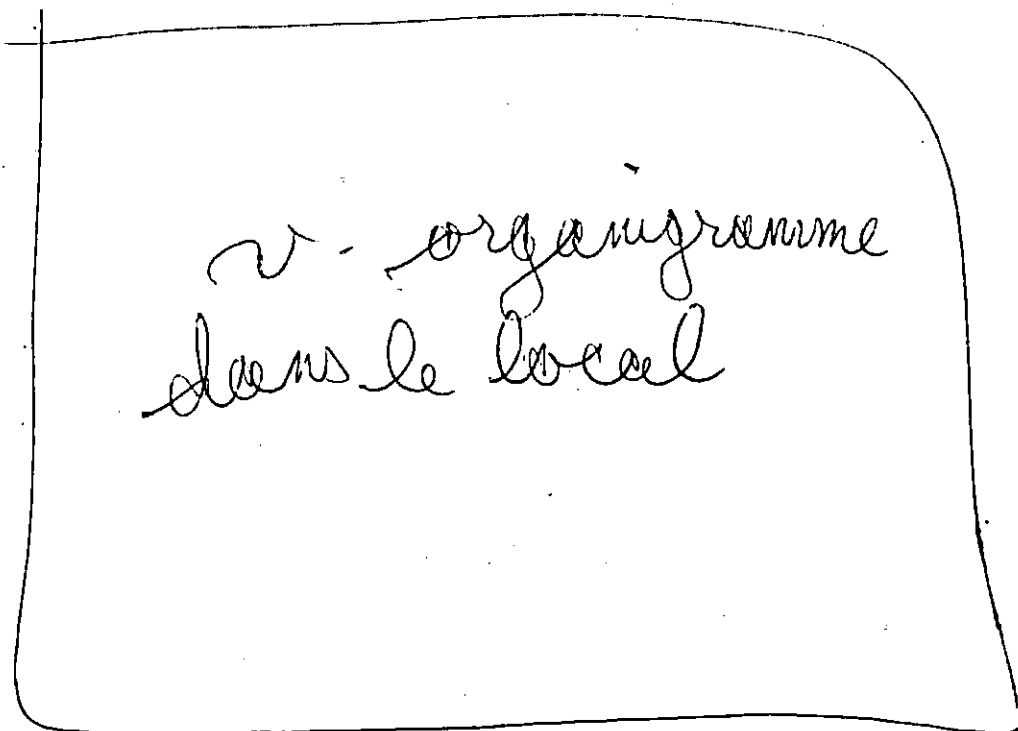 v. organigramme
dans le local